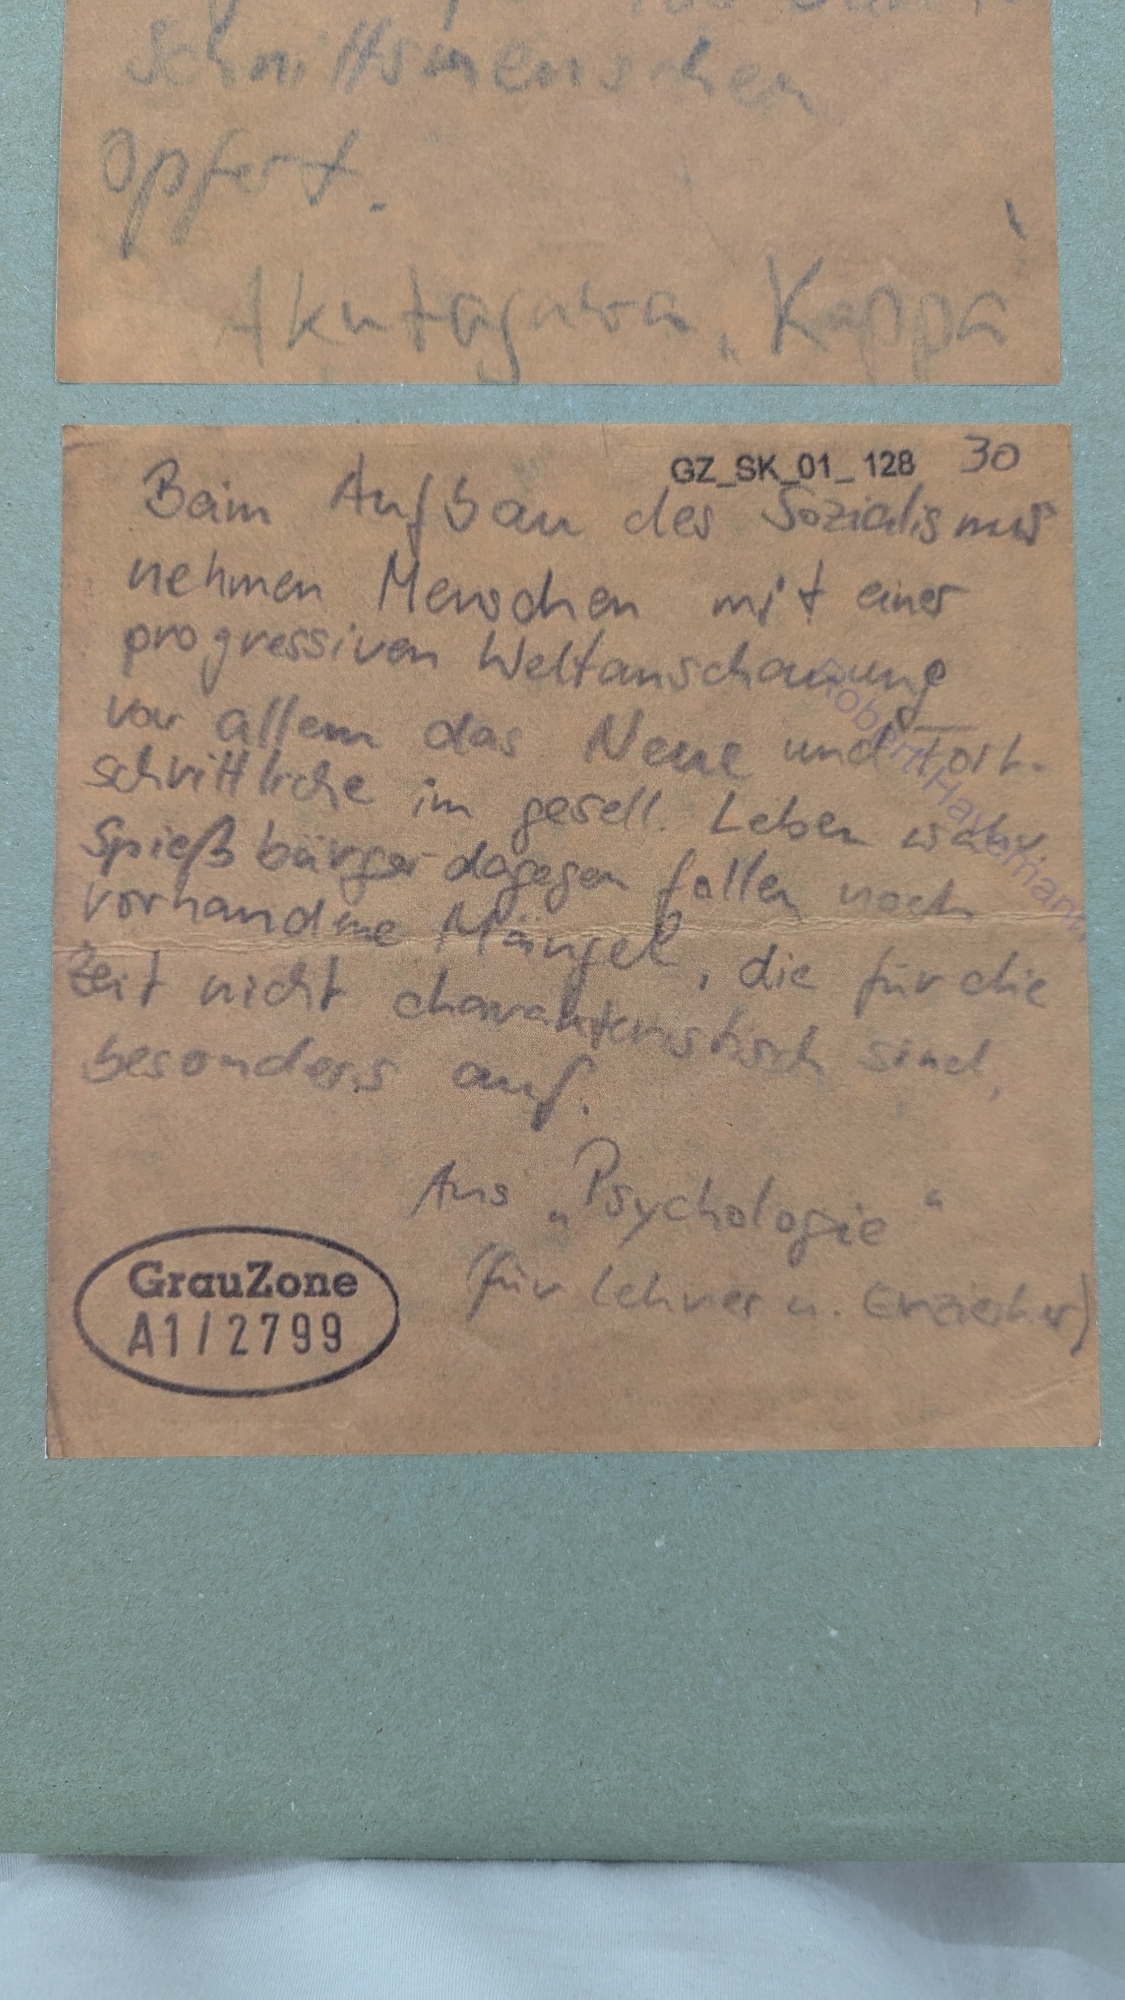 Schnittsmenschen
opfert.
Akutagawa, „Kappa
GZ_SK_01_128 30
Beim Aufbau des Sozialismus
nehmen Menschen mit einer
progressiven Weltanschauung
vor allem das Neue und Fort-
schrittliche im gesell. Leben wahr
Spießbürger dagegen fallen noch
vorhandne Mängel, die für die
Zeit nicht charakteristisch sind,
besonders auf.
Aus „Psychologie“
(für Lehrer u. Erzieher)
Robert Havemann
GrauZone
A1/2799